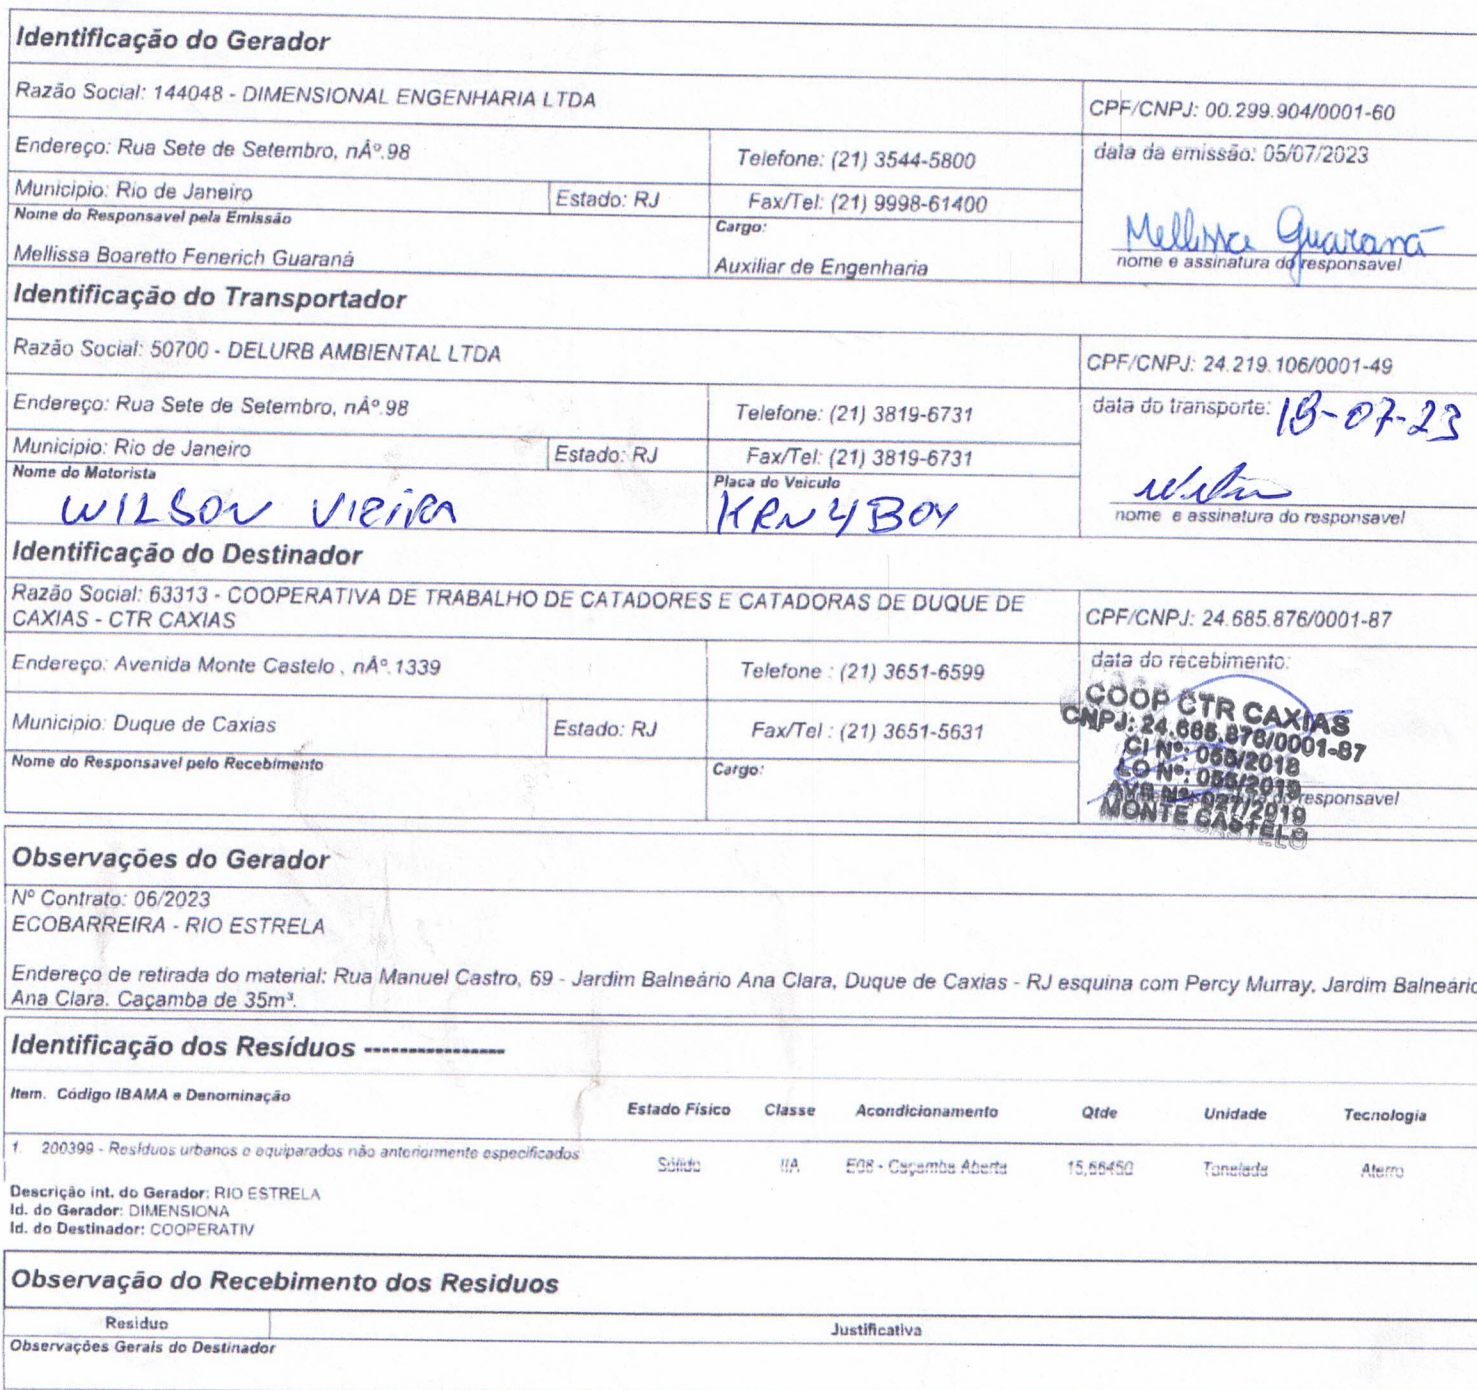 Identificação do Gerador
Razão Social: 144048 - DIMENSIONAL ENGENHARIA LTDA
CPF/CNPJ: 00.299.904/0001-60
Endereço: Rua Sete de Setembro, nÂº.98
Telefone: (21) 3544-5800
data da emissão: 05/07/2023
Municipio: Rio de Janeiro
Estado: RJ
Fax/Tel: (21) 9998-61400
Nome do Responsavel pela Emissão
Cargo:
Mellissa Guaraná
Mellissa Boaretto Fenerich Guaraná
Auxiliar de Engenharia
nome e assinatura do responsavel
Identificação do Transportador
Razão Social: 50700 - DELURB AMBIENTAL LTDA
CPF/CNPJ: 24.219.106/0001-49
Endereço: Rua Sete de Setembro, nÂº.98
Telefone: (21) 3819-6731
data do transporte: 18-07-23
Municipio: Rio de Janeiro
Estado: RJ
Fax/Tel: (21) 3819-6731
Nome do Motorista
Placa do Veiculo
WILSON VIEIRA
nome e assinatura do responsavel
Identificação do Destinador
Razão Social: 63313 - COOPERATIVA DE TRABALHO DE CATADORES E CATADORAS DE DUQUE DE
CAXIAS - CTR CAXIAS
CPF/CNPJ: 24.685.876/0001-87
Endereço: Avenida Monte Castelo , nÂº.1339
Telefone : (21) 3651-6599
data do recebimento:
Municipio: Duque de Caxias
Estado: RJ
Fax/Tel : (21) 3651-5631
COOP CTR CAXIAS
CNPJ: 24.685.876/0001-87
CI Nº: 055/2018
LO Nº: 055/2019
AVB Nº: 027/2019
MONTE CASTELO
Nome do Responsavel pelo Recebimento
Cargo:
do responsavel
Observações do Gerador
Nº Contrato: 06/2023
ECOBARREIRA - RIO ESTRELA
Endereço de retirada do material: Rua Manuel Castro, 69 - Jardim Balneário Ana Clara, Duque de Caxias - RJ esquina com Percy Murray, Jardim Balneário
Ana Clara. Caçamba de 35m³.
Identificação dos Resíduos ----------------
Item. Código IBAMA e Denominação
Estado Físico Classe Acondicionamento Qtde Unidade Tecnologia
1. 200399 - Resíduos urbanos e equiparados não anteriormente especificados
Sólido IIA E08 - Caçamba Aberta 15,66450 Tonelada Aterro
Descrição int. do Gerador: RIO ESTRELA
Id. do Gerador: DIMENSIONA
Id. do Destinador: COOPERATIV
Observação do Recebimento dos Residuos
Residuo
Justificativa
Observações Gerais do Destinador